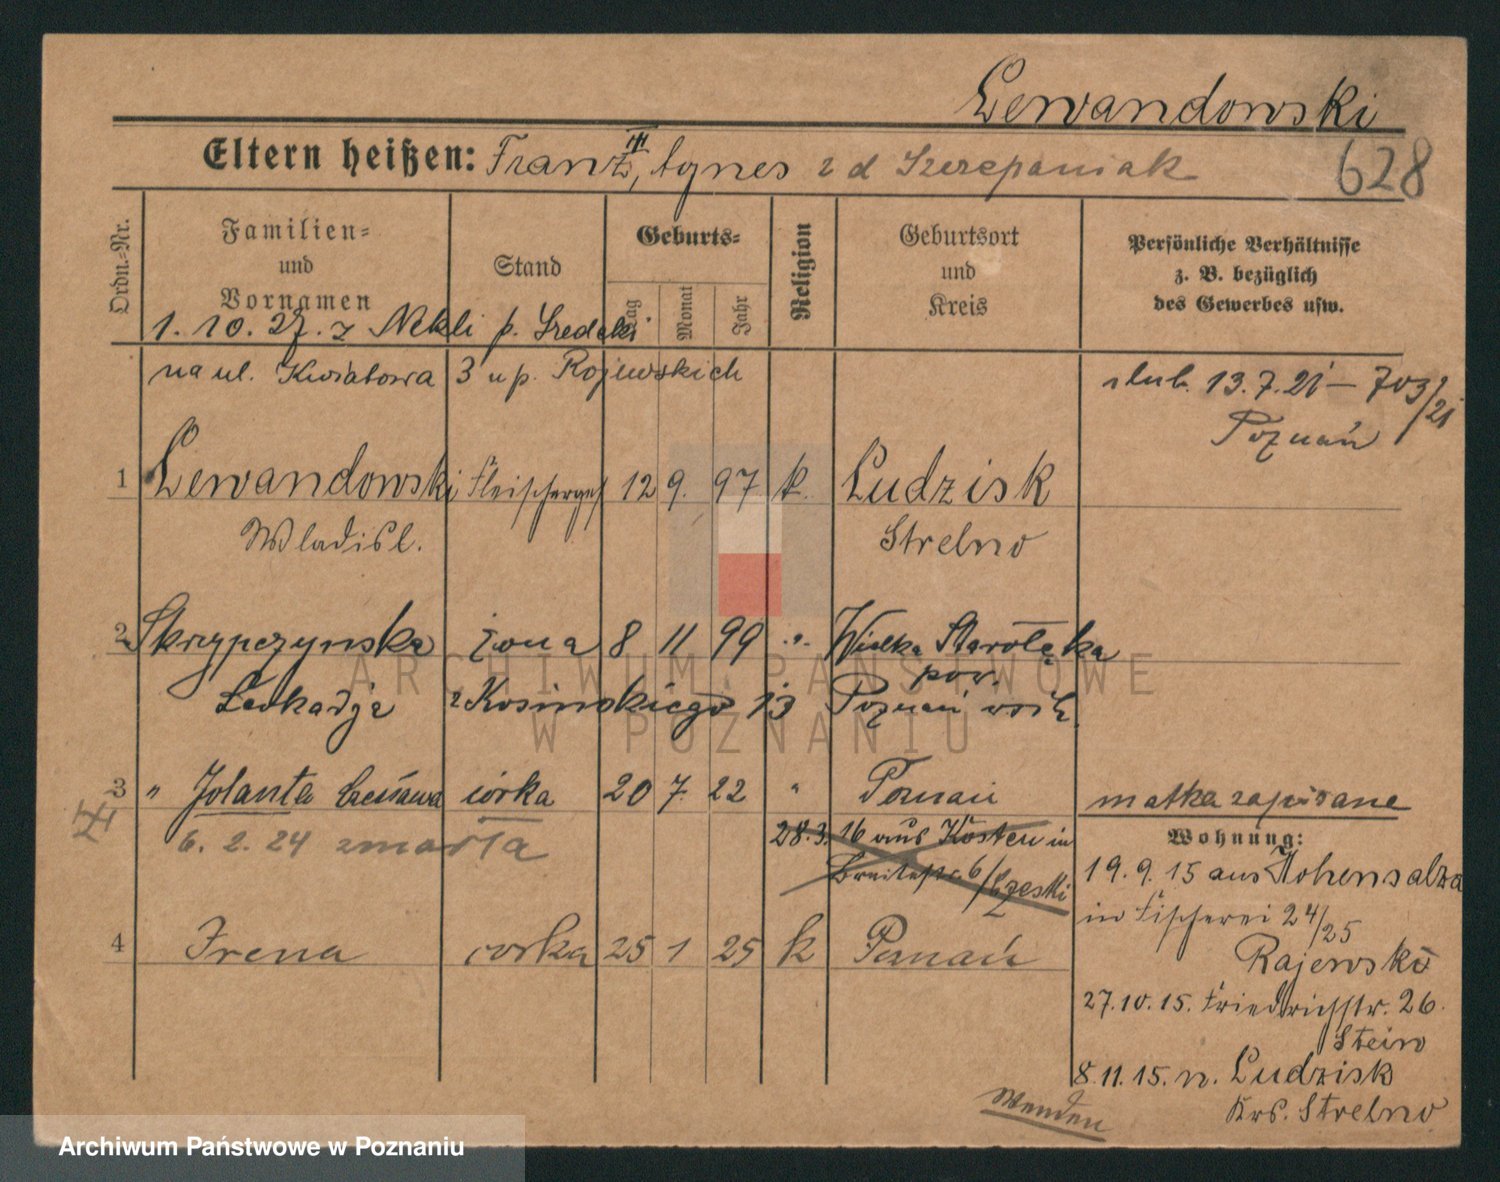 Lewandowski
Eltern heißen: Franz, Agnes z d Szczepaniak 628
III
Ordn.-Nr.
Familien-
und
Vornamen
Stand
Geburts-
Tag
Monat
Jahr
Religion
Geburtsort
und
Kreis
Persönliche Verhältnisse
z. B. bezüglich
des Gewerbes usw.
1. 10. 27. z Nekli p. Sredzki
na ul. Kwiatowa 3 u p. Rojewskich
slub. 13. 7. 21 – 703/21
Poznań
1 Lewandowski Fleischerges 12 9. 97 k. Ludzisk
Wladisl. Strelno
2 Skrzypczynska żona 8 11 99 " Wielka Starołęka
pow.
Leokadja z Kosinskiego 13 Poznań wsch.
3 " Jolanta Czesława córka 20 7. 22 " Poznań matka zapisane
6. 2. 24 zmarła
28. 3. 16 aus Kosten in
Breitestr 6/Czeski
4 Irena corka 25 1 25 k Poznań
Wohnung:
19. 9. 15 aus Hohensalza
in Fischerei 24/25
Rajewski
27. 10. 15. Friedrichstr. 26.
Stein
8. 11. 15. n. Ludzisk
Krs. Strelno
Wenden
ARCHIWUM PAŃSTWOWE
W POZNANIU
Archiwum Państwowe w Poznaniu